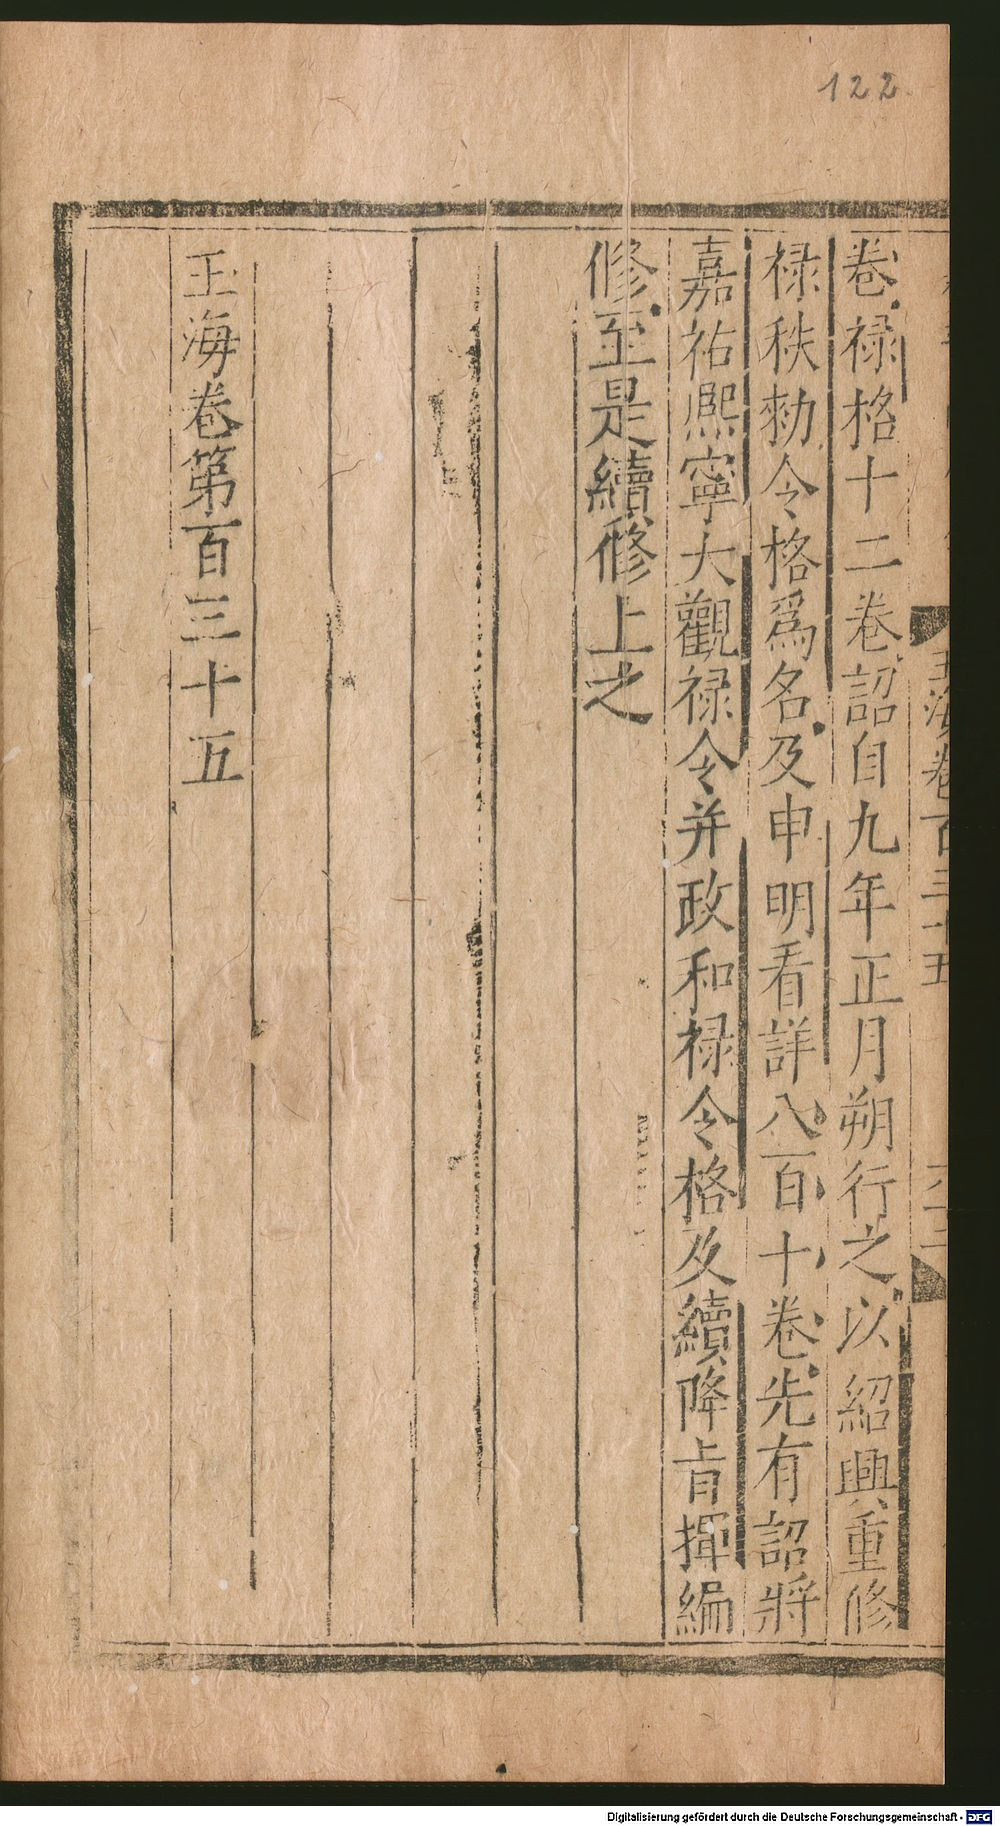 122
玉海卷百三十五
卷祿格十二卷詔自九年正月朔行之以紹興重修
祿秩勑令格爲名及申明看詳八百十卷先有詔將
嘉祐熈寧大觀祿令并政和祿令格及續降㫖揮編
修至是續修上之
玉海卷第百三十五
Digitalisierung gefördert durch die Deutsche Forschungsgemeinschaft - DFG